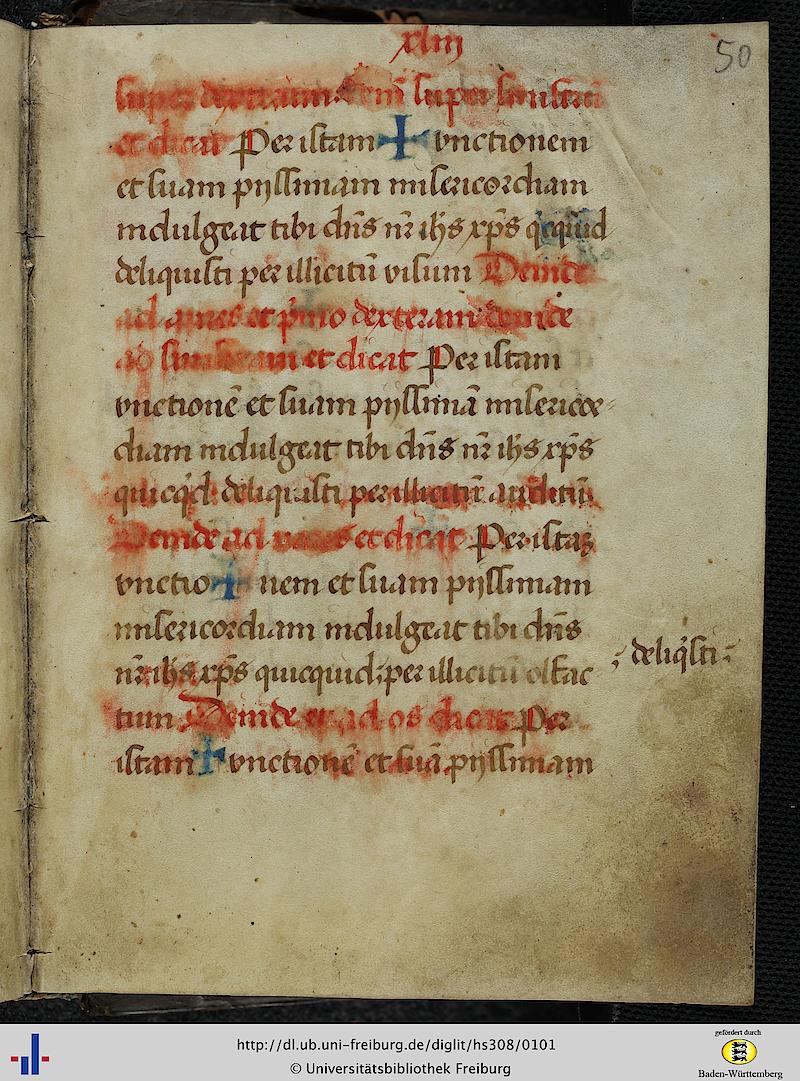 xliii
50
super dexterum. dein̄ super sinistrū
et dicat Per istam + vnctionem
et suam pijssimam misericordiam
indulgeat tibi dn̄s nr̄ ih̄s xp̄s q̇cquid
deliquisti per illicitū visum Deinde
ad aures et p̓mo dexteram deinde
ad sinistram et dicat Per istam
vnctionē et suam pijssimā misericor⸗
diam indulgeat tibi dn̄s nr̄ ih̄s xp̄s
quicq̓d deliquisti per illicitū auditū.
Deinde ad nares et dicat Per istaꝫ
vnctio + nem et suam pijssimam
misericordiam indulgeat tibi dn̄s
nr̄ ih̄s xp̄s quicquid ⁏ per illicitū olfac
⁏ deliq̓sti ⁏
tum Deinde et ad os dicat Per
istam + vnctionē et suā pijssimam
http://dl.ub.uni-freiburg.de/diglit/hs308/0101
© Universitätsbibliothek Freiburg
gefördert durch
Baden-Württemberg